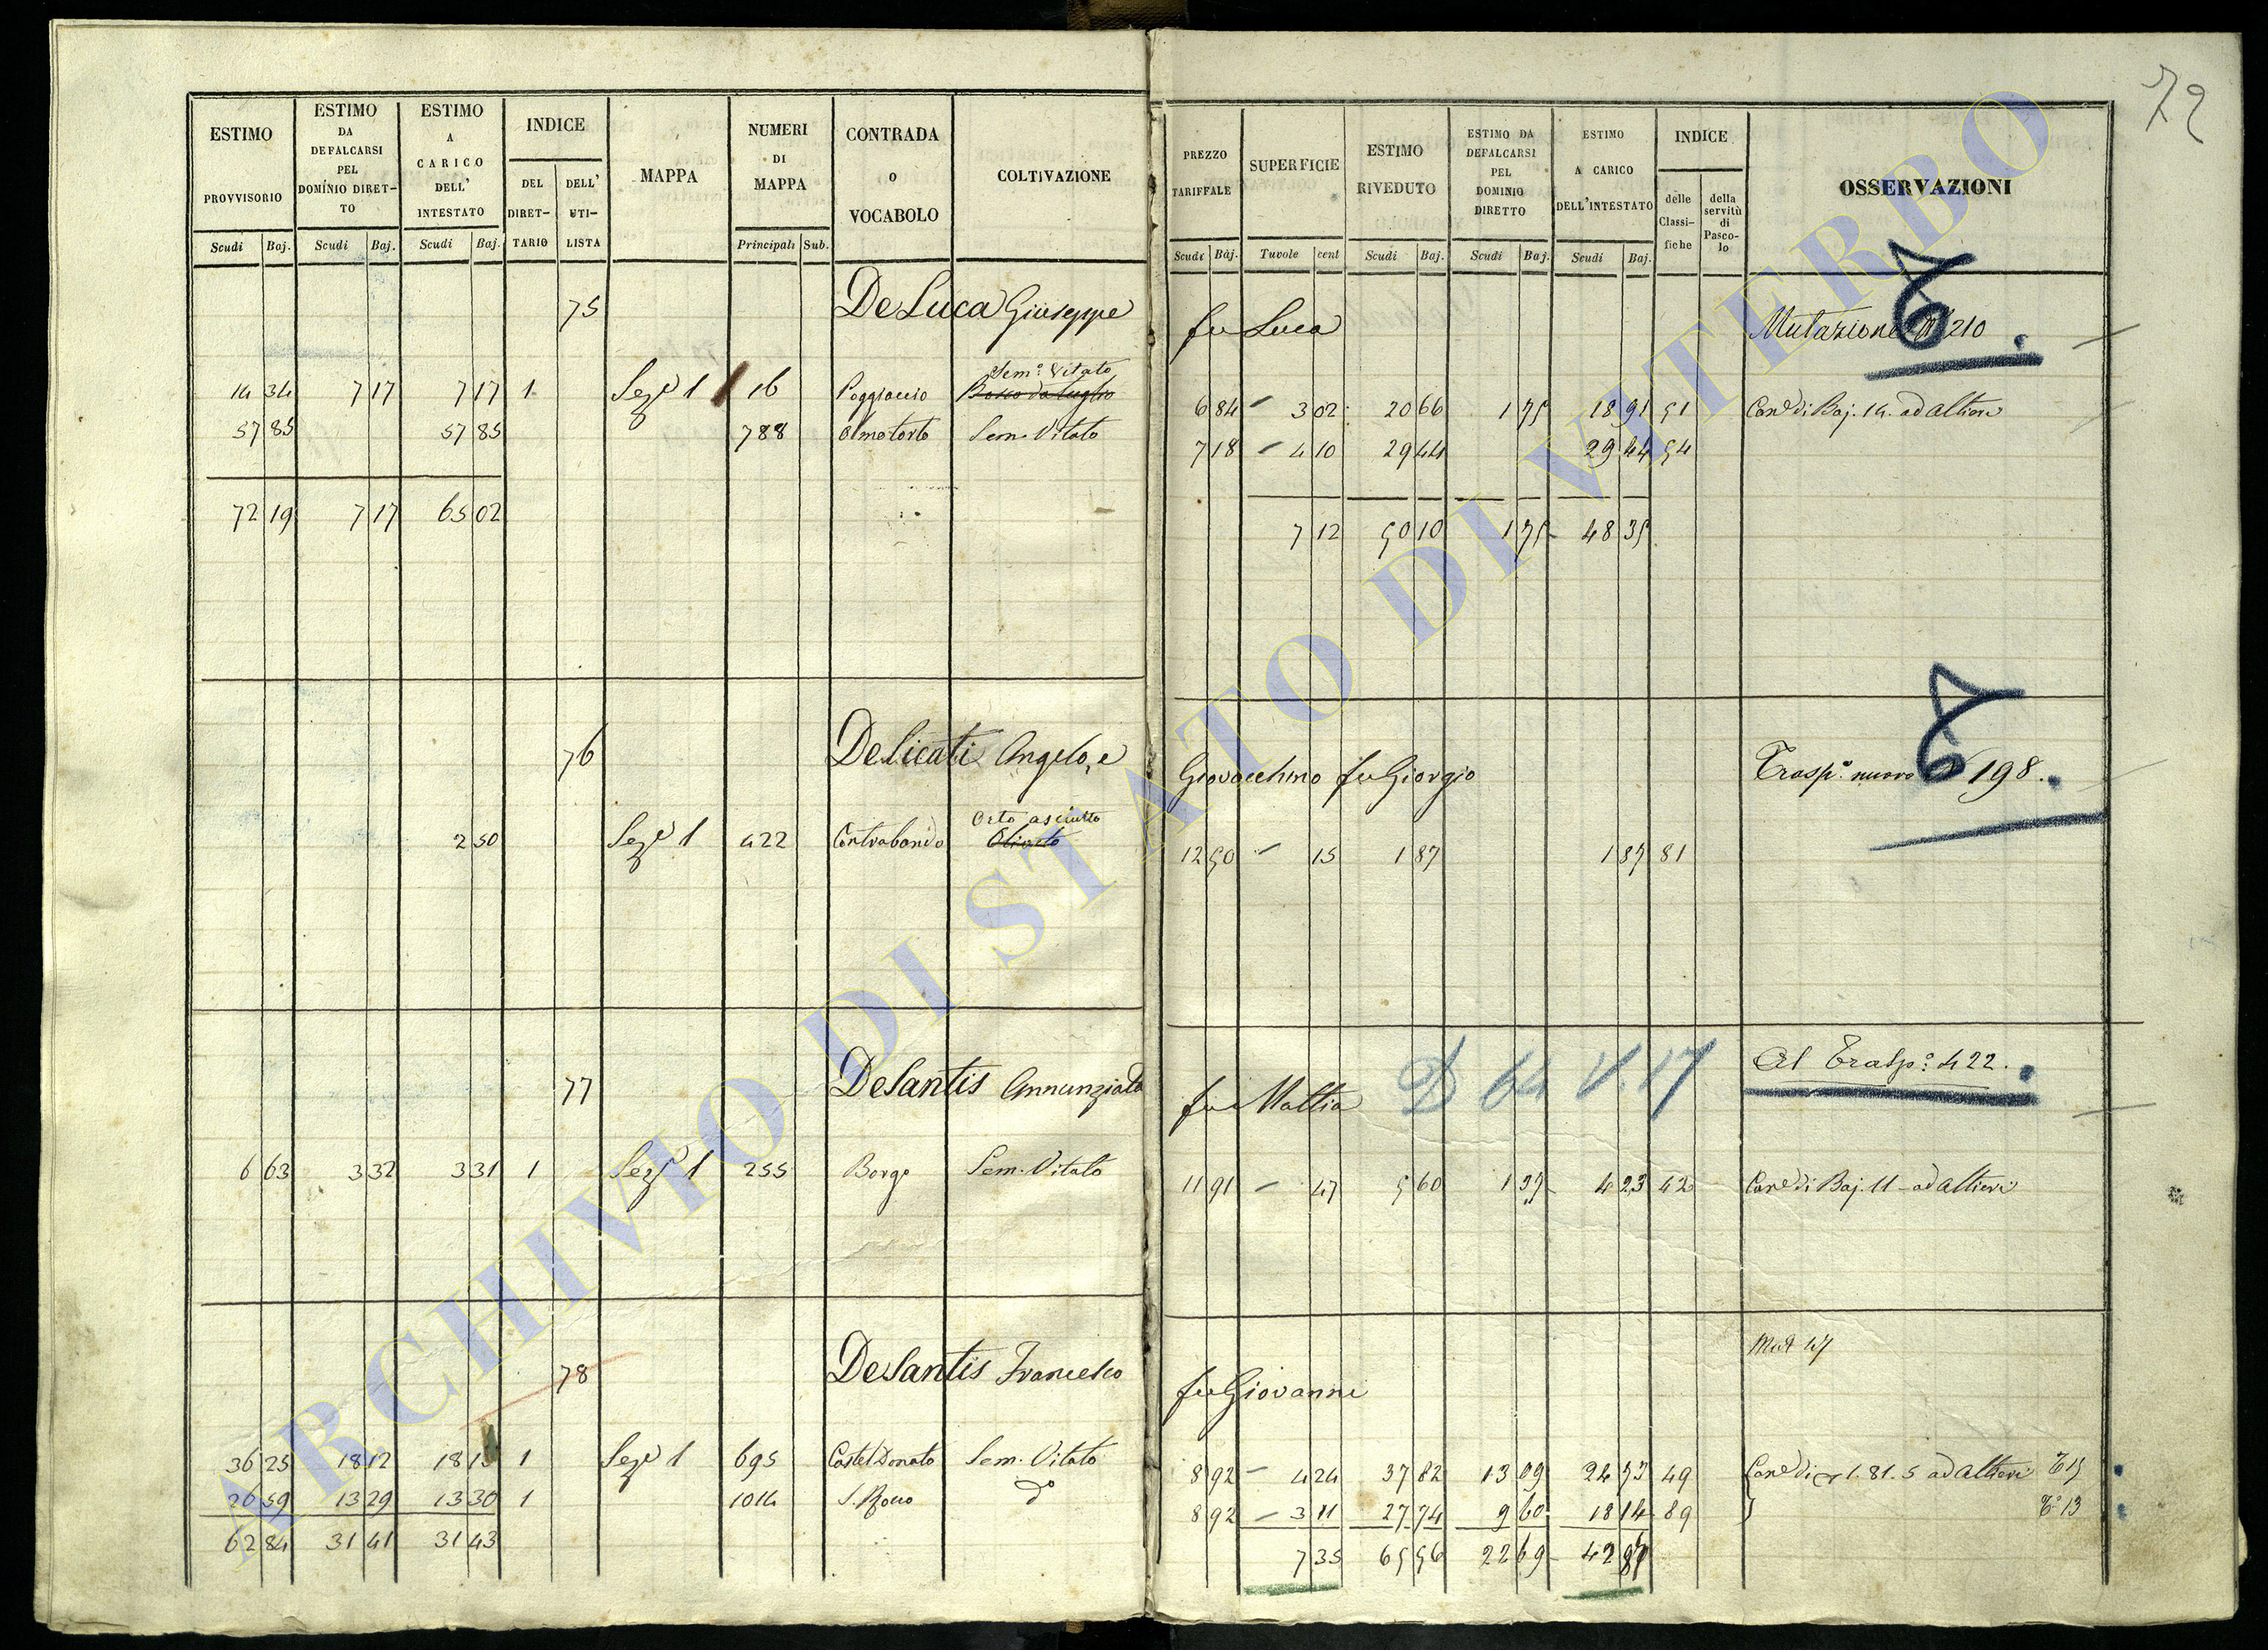 72
ESTIMO PROVVISORIO Scudi Baj.
ESTIMO DA DEFALCARSI PEL DOMÍNIO DIRETTO Scudi Baj.
ESTIMO A CARICO DELL' INTESTATO Scudi Baj.
INDICE DEL DIRETTARIO DELL' UTILISTA
MAPPA
NUMERI DI MAPPA Principali Sub.
CONTRADA O VOCABOLO
COLTIVAZIONE
PREZZO TARIFFALE Scudi Baj.
SUPERFICIE Tavole cent
ESTIMO RIVEDUTO Scudi Baj.
ESTIMO DA DEFALCARSI PEL DOMINIO DIRETTO Scudi Baj.
ESTIMO A CARICO DELL'INTESTATO Scudi Baj.
INDICE delle Classifiche della servitù di Pascolo
OSSERVAZIONI
75 De Luca Giuseppe fu Luca Mutazione N 210
Sem.o Vitato
14 34 7 17 7 17 1 Seze 1 16 Poggiaccio Bosco da taglio 6 84 - 3 02 20 66 1 75 18 91 51 Cane di Baj. 14. ad Altieri
57 85 57 85 788 Olmotorto Sem. Vitato 7 18 - 4 10 29 44 29 44 54
72 19 7 17 65 02 7 12 50 10 1 75 48 35
76 Delicati Angelo, e Giovacchino fu Giorgio Trasp.o nuovo 198.
Orto asciutto
2 50 Seze 1 422 Contrabando Olivato 12 50 - 15 1 87 1 87 81
77 DeSantis Annunziata fu Mattia D 64 V. 17 Al Trasp.o 422.
6 63 3 32 3 31 1 Seze 1 255 Borgo Sem. Vitato 11 91 - 47 5 60 1 37 4 23 42 Cane di Baj. 11 - ad Altieri
78 DeSantis Francesco fu Giovanni Mut 17
36 25 18 12 18 13 1 Seze 1 695 Castel Donato Sem. Vitato 8 92 - 4 24 37 82 13 09 24 73 49 Cane di 1. 81. 5 ad Altieri T 15
26 59 13 29 13 30 1 1014 S. Rocco do 8 92 - 3 11 27 74 9 60 18 14 89 T.o 13
62 84 31 41 31 43 7 35 65 56 22 69 42 87
ARCHIVIO DI STATO DI VITERBO